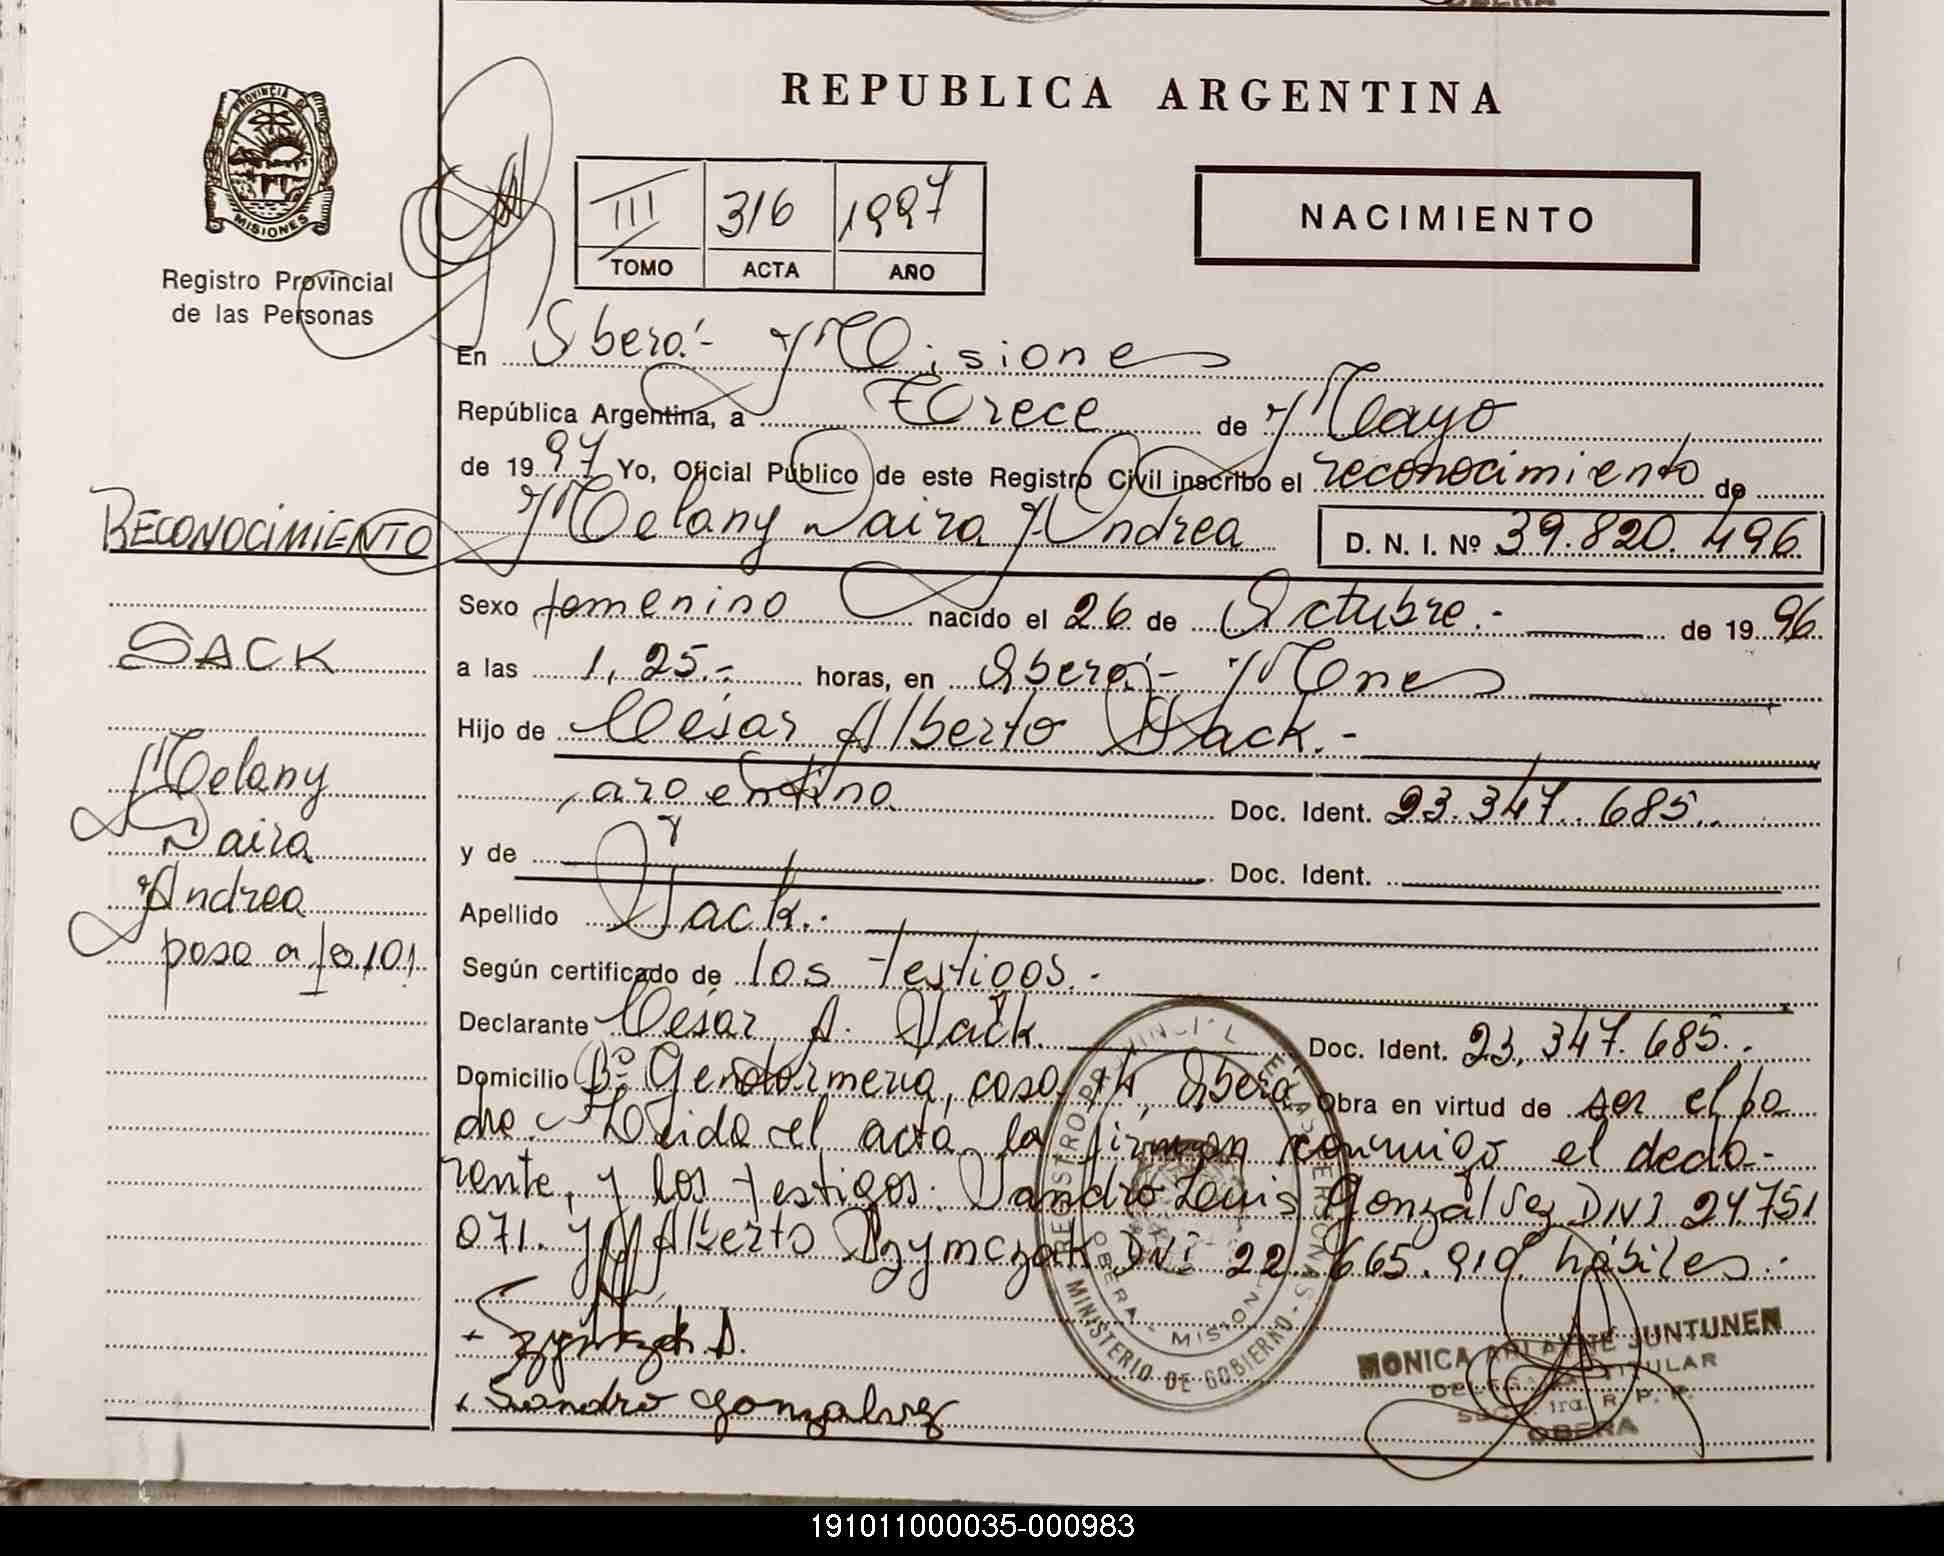 REPUBLICA ARGENTINA
PROVINCIA D
MISIONES
Registro Provincial
de las Personas
III 316 1997
TOMO ACTA AÑO
NACIMIENTO
En Oberá.- Misiones
República Argentina, a Trece de Mayo
de 1997 Yo, Oficial Público de este Registro Civil inscribo el reconocimiento de
RECONOCIMIENTO
Melany Daira Andrea D. N. I. Nº 39.820.496
Sexo femenino nacido el 26 de Octubre.- de 1996
SACK
a las 1,25.- horas, en Oberá.- Mnes
Hijo de César Alberto Sack.-
Melany
Daira
Andrea
paso a fo 101
argentino Doc. Ident. 23.347.685..
y de Doc. Ident.
Apellido Sack.-
Según certificado de los testigos.-
Declarante César A. Sack. Doc. Ident. 23.347.685..
Domicilio Bº Gendarmeria, casa 14, Oberá Obra en virtud de ser el pa
dre. Leida el acta la firman conmigo el decla-
rente, y los testigos: Sandro Luis Gonzalvez DNI 24.751
071. y Alberto Szymczak DNI 22.665.919 hábiles.-
Szymczak A.
Sandro Gonzalvez
REGISTRO PROVINCIAL DE LAS PERSONAS
OBERA - MISIONES
MINISTERIO DE GOBIERNO
MONICA JUNTUNEN
DELEGADA TITULAR
SECC. 1ra. R. P. P.
OBERA
191011000035-000983